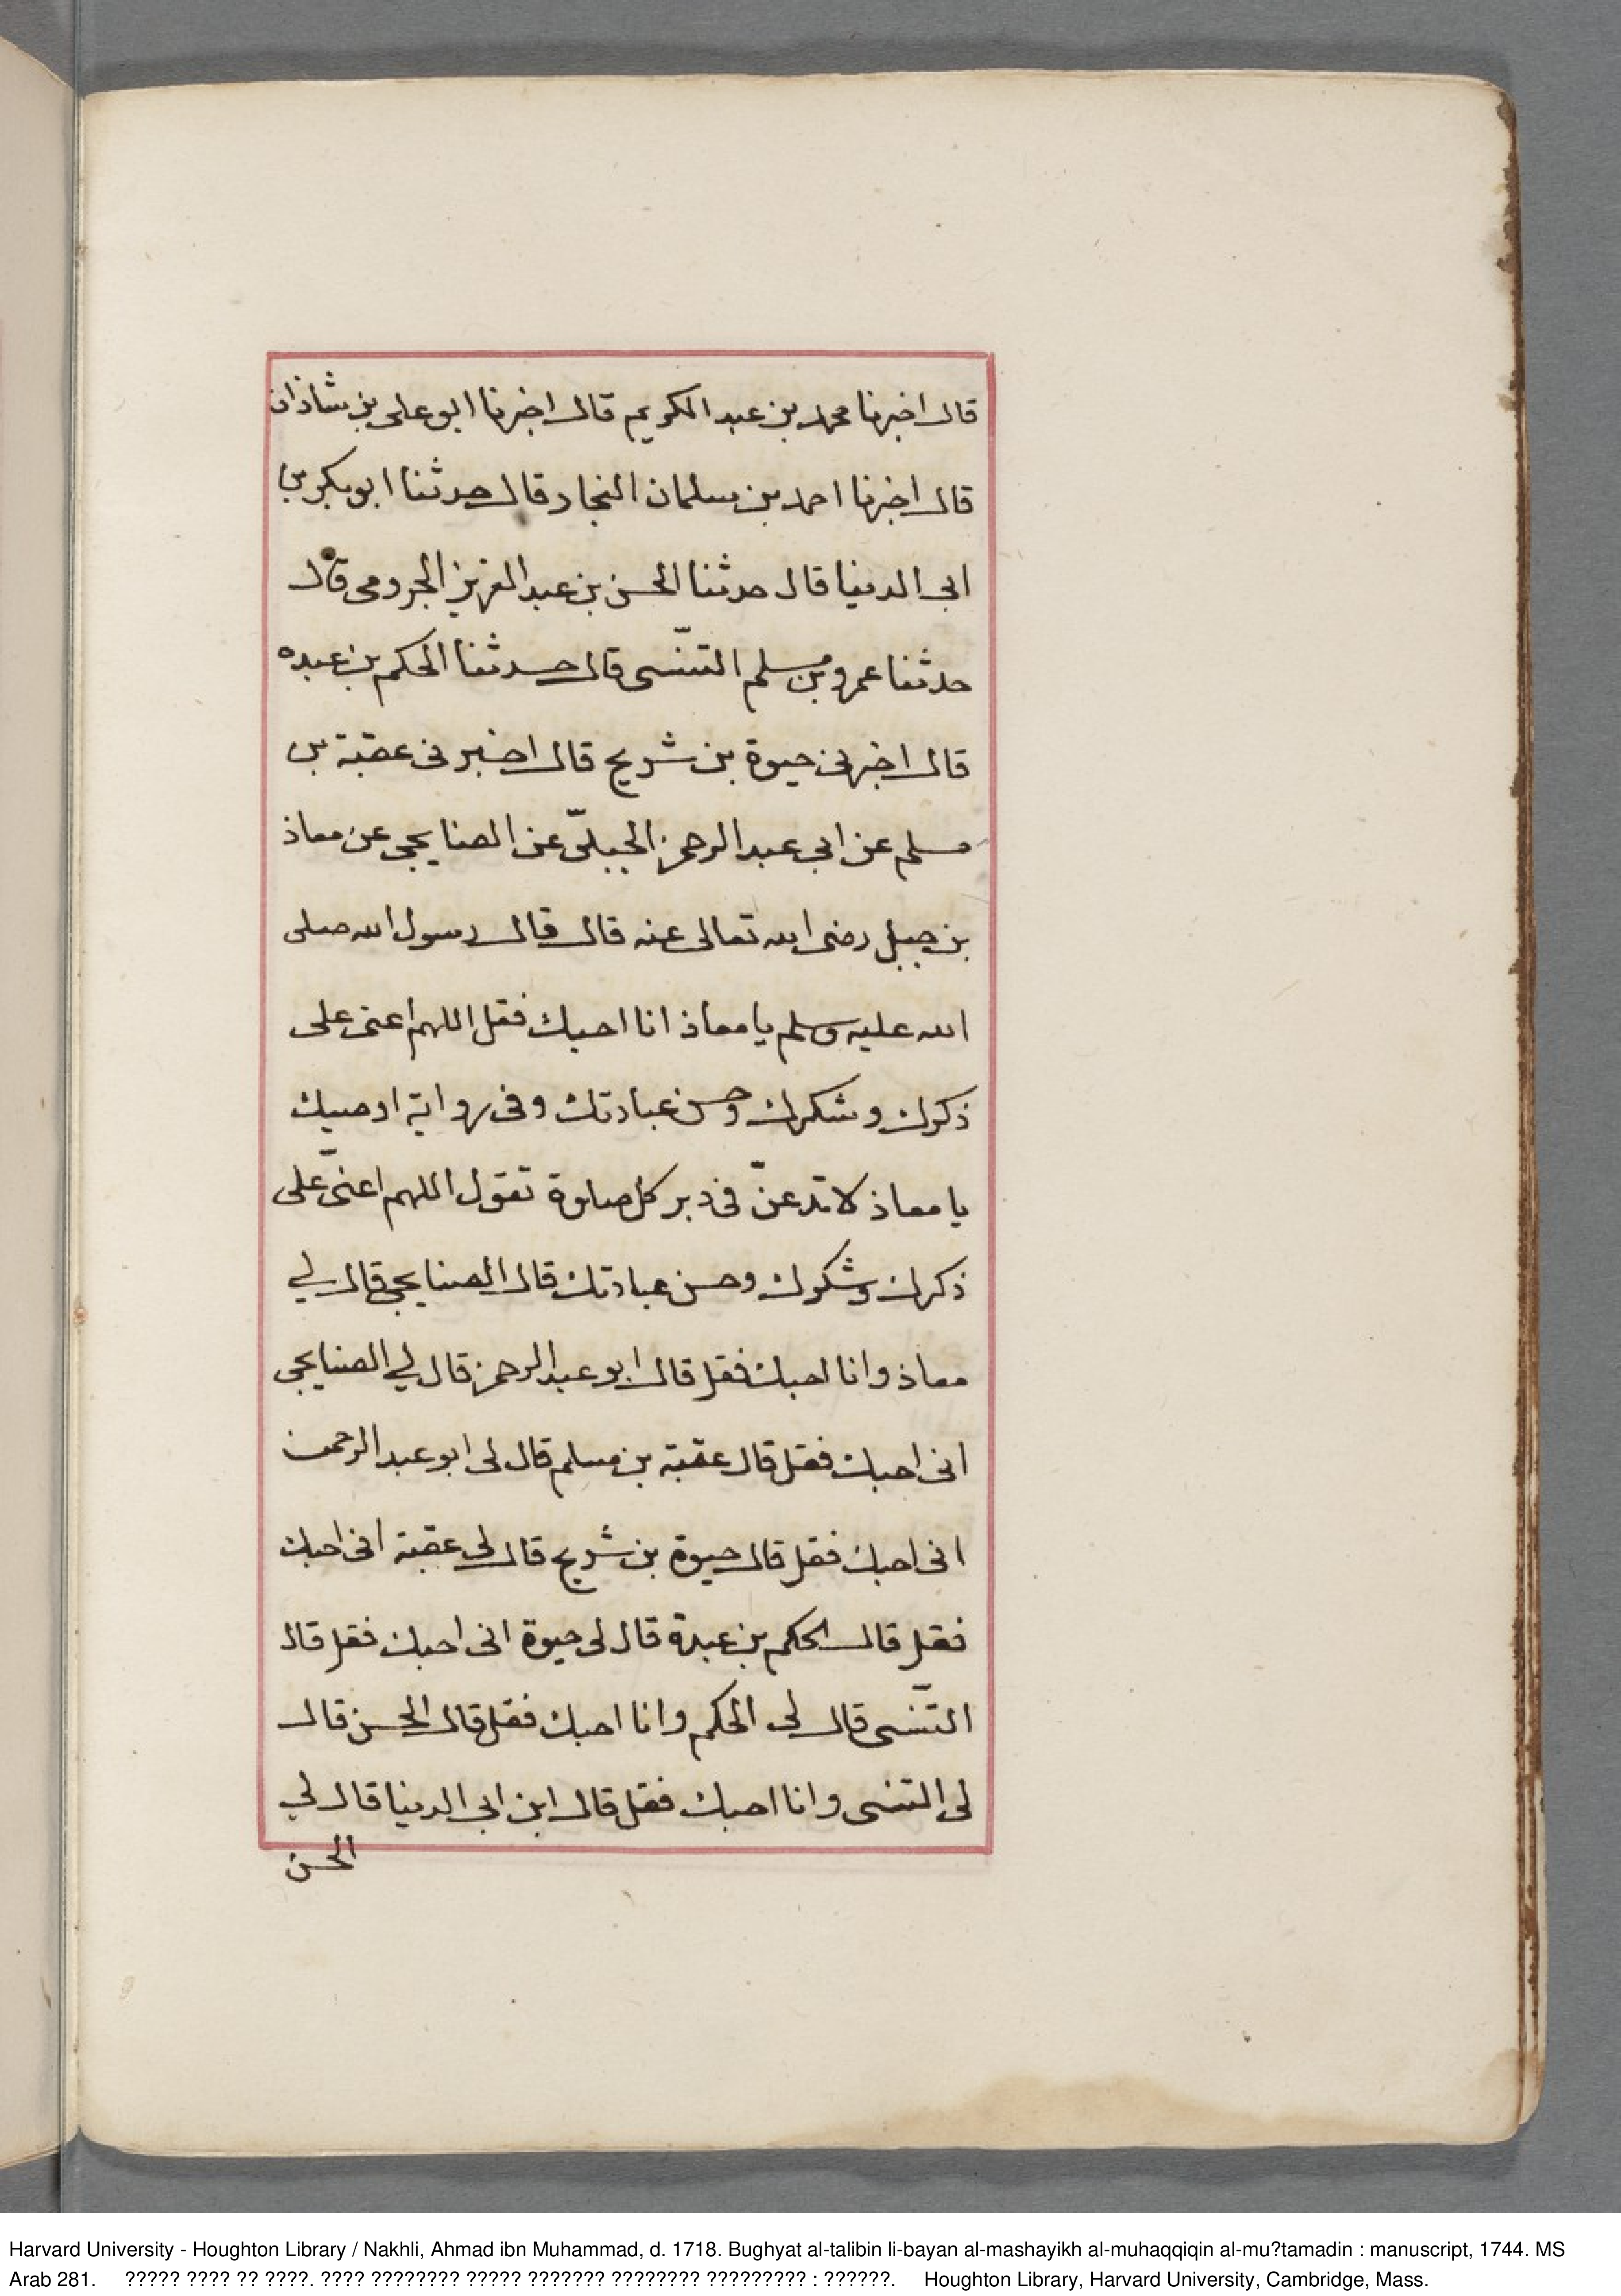 قال اخبرنا محمد بن عبد الكريم قال اخبرنا ابو على بن شاذان
قال اخبرنا احمد بن سلمان النجاد قال حدثنا ابو بكر بن
ابى الدنيا قال حدثنا الحسن بن عبد العزيز الجرومى قال
حدثنا عمرو بن مسلم التنّسى قال حدثنا الحكم بن عبده
قال اخبرنى حيوة بن شريح قال اخبرنى عقبة بن
مسلم عن ابي عبد الرحمن الحبلىّ عن الصنايحى عن معاذ
بن جبل رضى الله تعالى عنه قال قال رسول الله صلى
الله عليه وسلم يا معاذ انا احبك فقل اللهم اعنى على
ذكرك وشكرك وحسن عبادتك وفى رواية اوصيك
يا معاذ لا تدعنّ فى دبر كل صلوة تقول اللهم اعنىّ على
ذكرك وشكرك وحسن عبادتك قال الصنايحى قال لي
معاذ وانا احبك فقل قال ابو عبد الرحمن قال لي الصنايحى
انى احبك فقل قال عقبة بن مسلم قال لى ابو عبد الرحمن
انى احبك فقل قال حيوة بن شريح قال لى عقبة انى احبك
فقل قال الحكم بن عبدة قال لى حيوة انى احبك فقل قال
التنّسى قال لى الحكم وانا احبك فقل قال الحسن قال
لى التنسى وانا احبك فقل قال ابن ابى الدنيا قال لي
الحسن
Harvard University - Houghton Library / Nakhli, Ahmad ibn Muhammad, d. 1718. Bughyat al-talibin li-bayan al-mashayikh al-muhaqqiqin al-mu?tamadin : manuscript, 1744. MS
Arab 281. ????? ???? ?? ????. ???? ???????? ????? ??????? ???????? ????????? : ??????. Houghton Library, Harvard University, Cambridge, Mass.